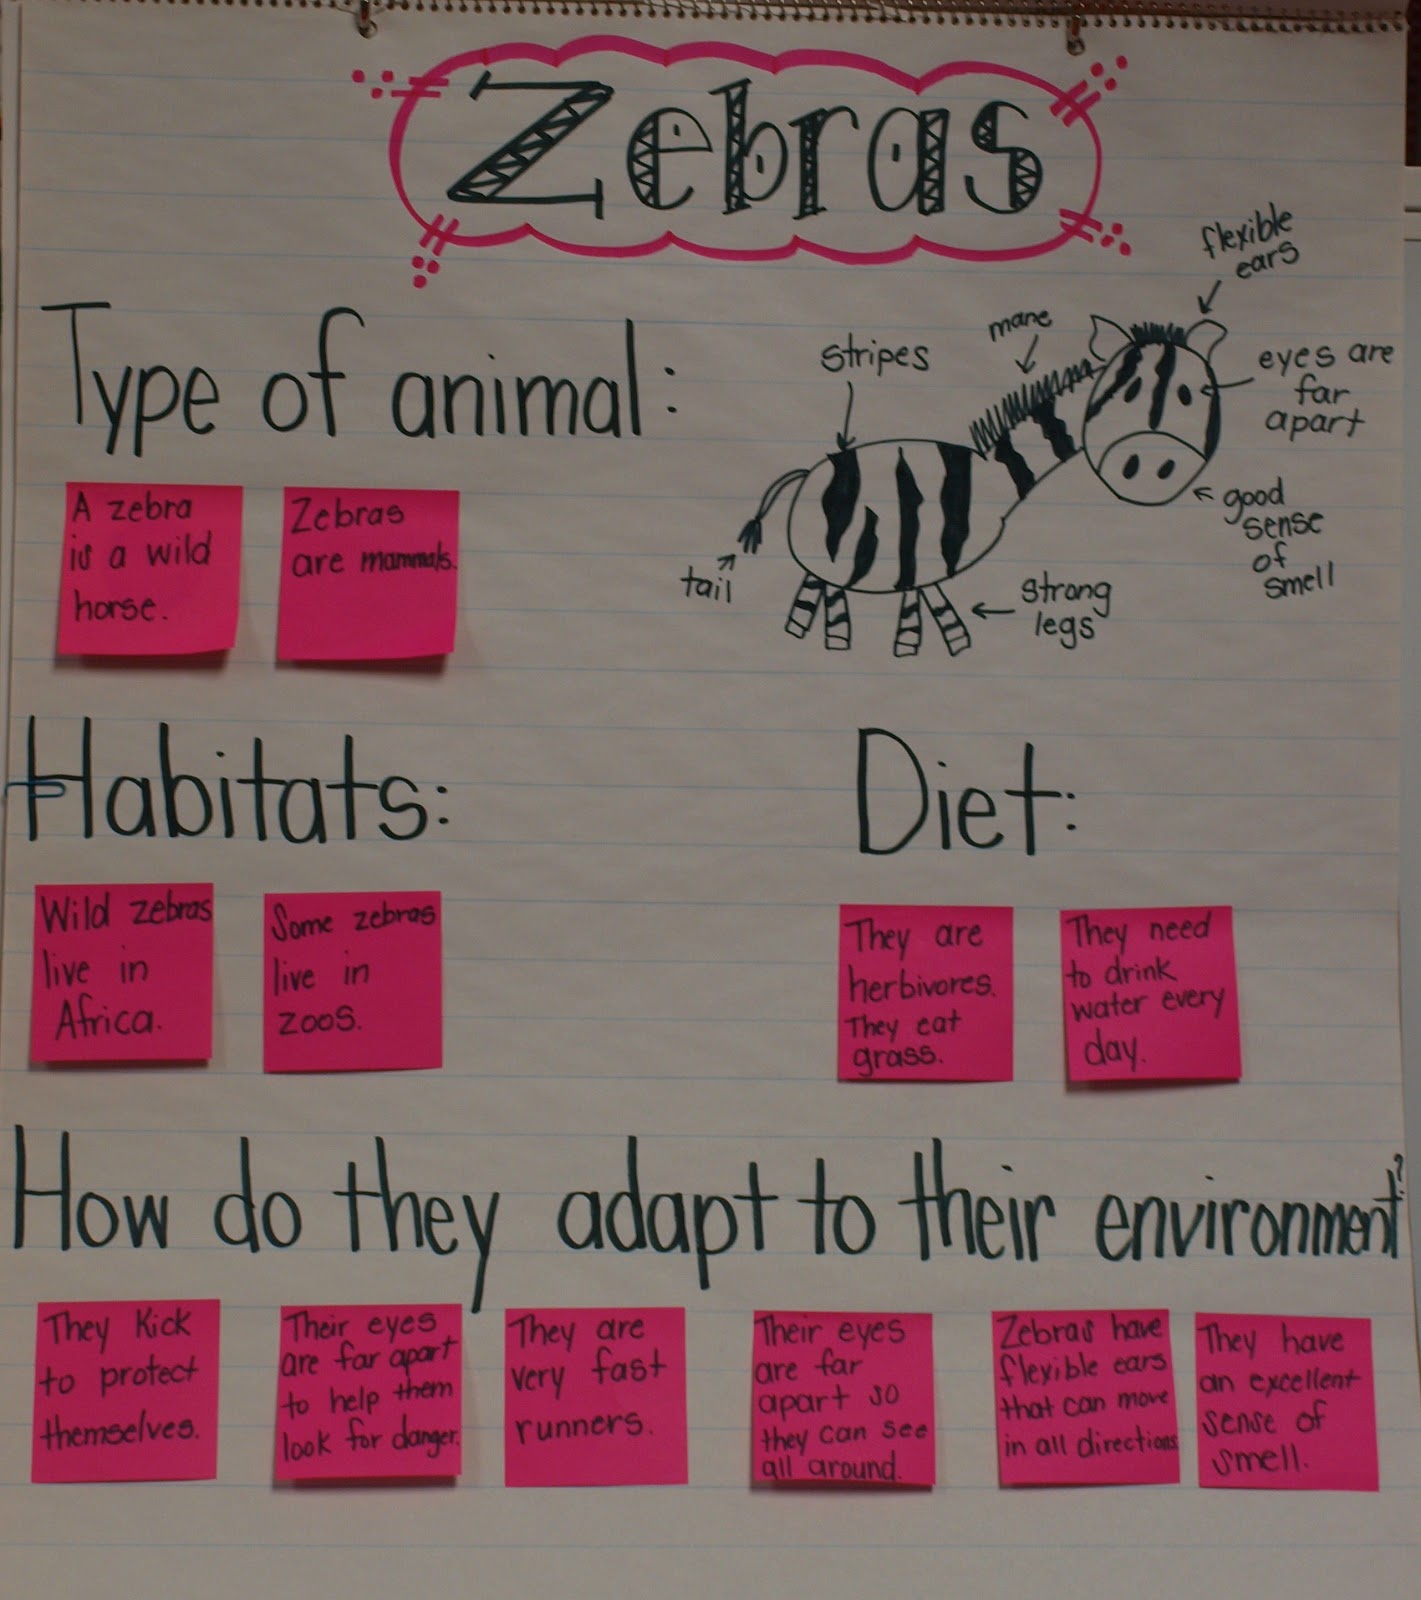 Zebras
Type of animal:
A zebra
is a wild
horse.
Zebras
are mammals.
stripes
mane
flexible
ears
eyes are
far
apart
good
sense
of
smell
strong
legs
tail
Habitats:
Wild zebras
live in
Africa.
Some zebras
live in
zoos.
Diet:
They are
herbivores.
They eat
grass.
They need
to drink
water every
day.
How do they adapt to their environment?
They kick
to protect
themselves.
Their eyes
are far apart
to help them
look for danger.
They are
very fast
runners.
Their eyes
are far
apart so
they can see
all around.
Zebras have
flexible ears
that can move
in all directions
They have
an excellent
sense of
smell.